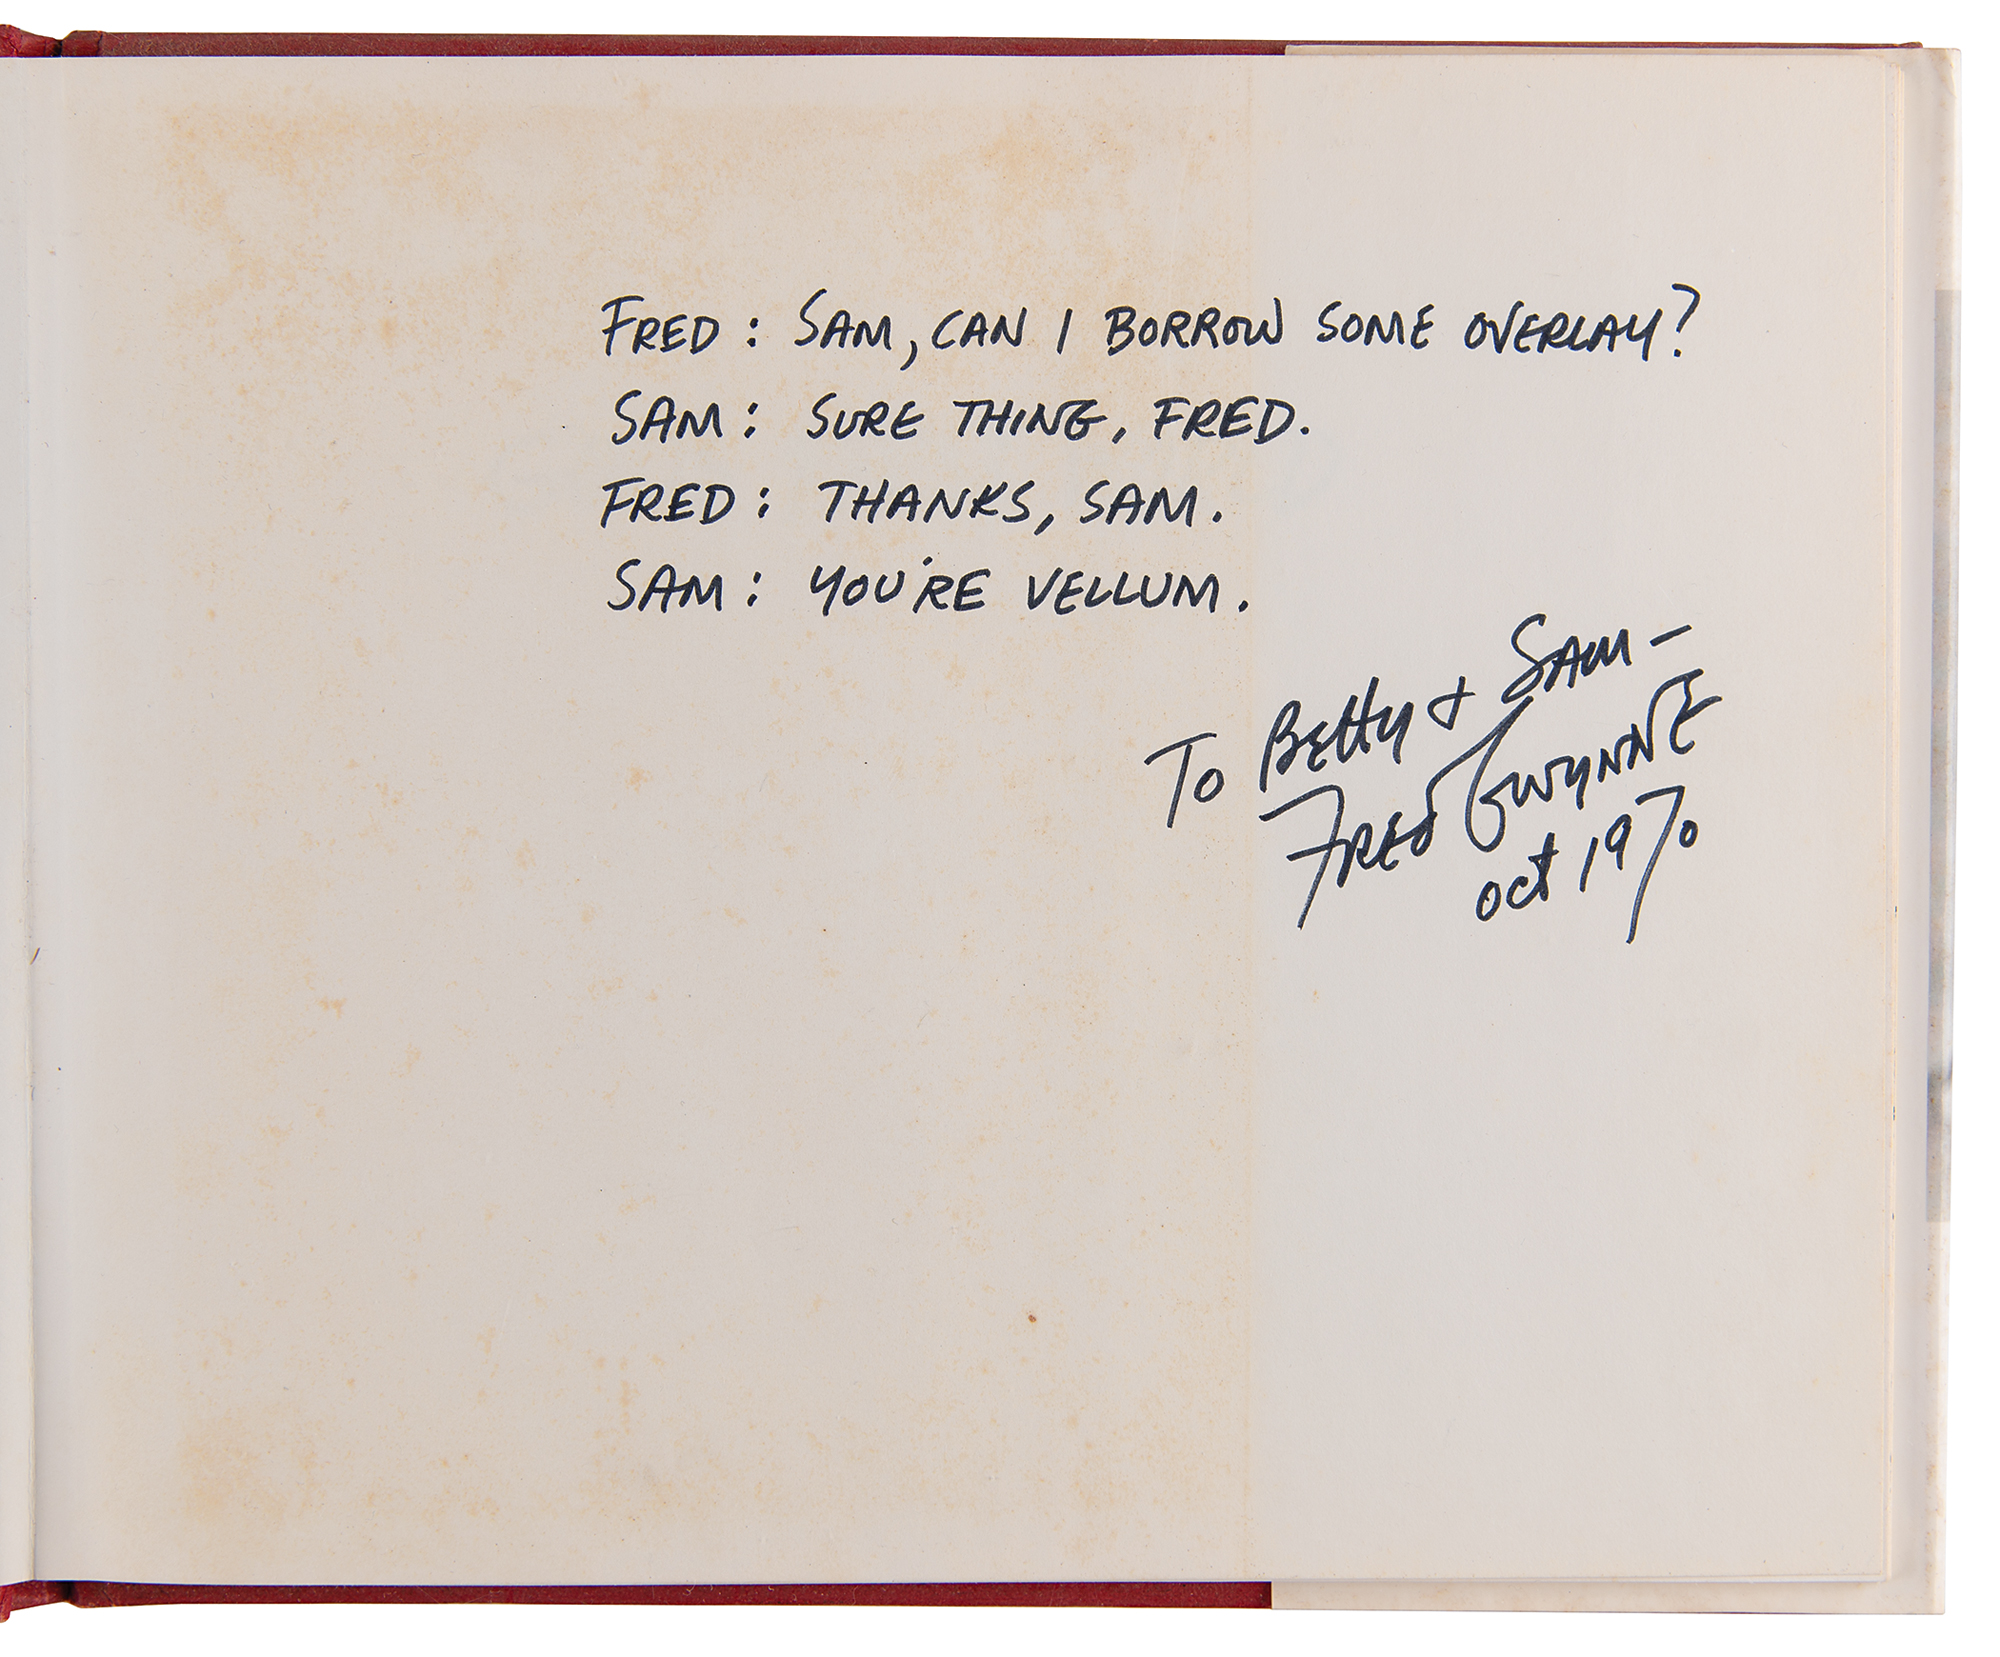 FRED: SAM, CAN I BORROW SOME OVERLAY?
SAM: SURE THING, FRED.
FRED: THANKS, SAM.
SAM: YOU'RE VELLUM.
To Betty + Sam –
FRED GWYNNE
oct 1970